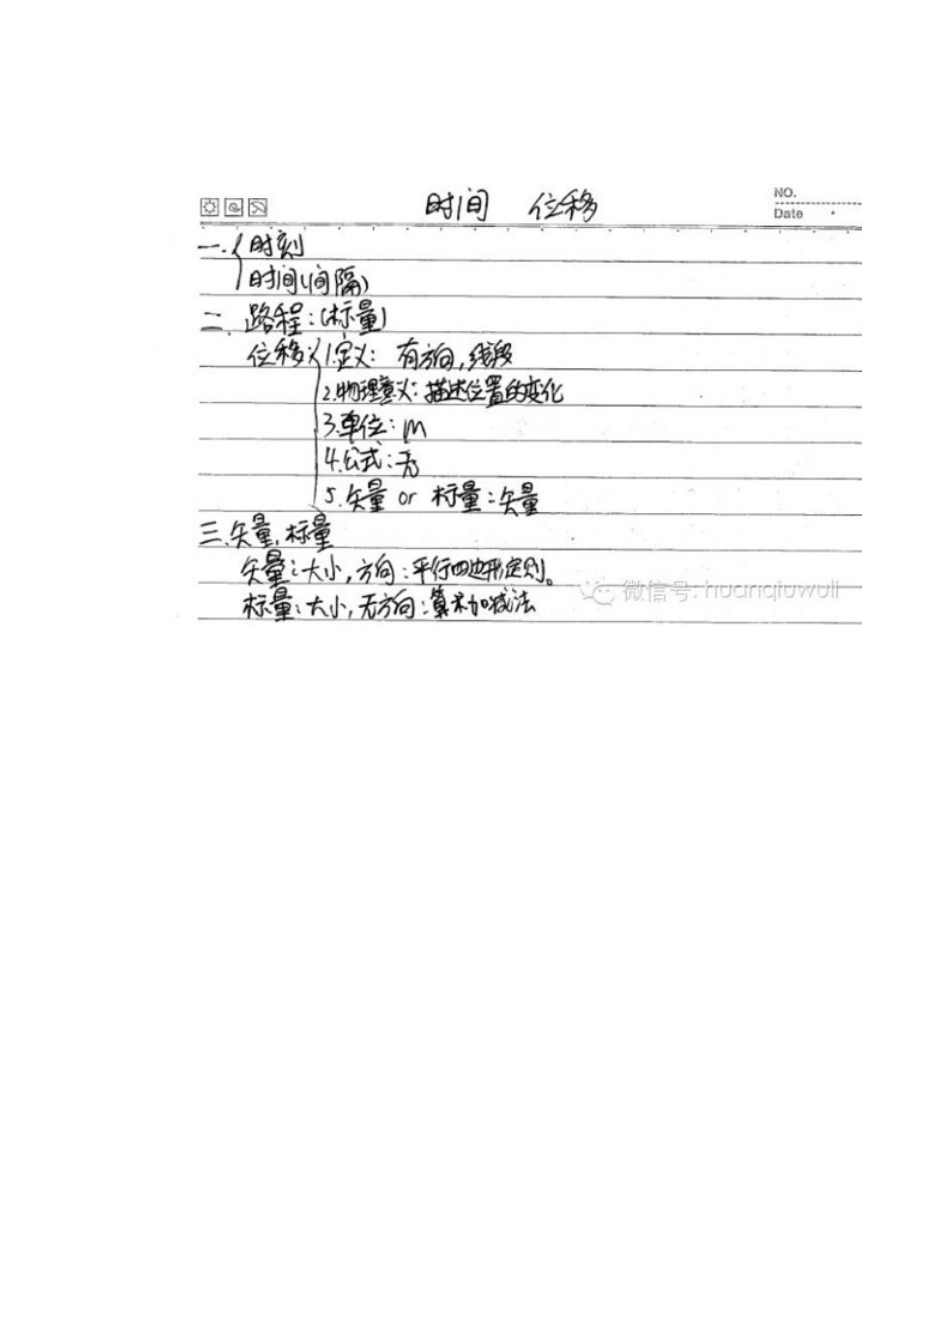 时间 位移
NO.
Date
一.{时刻
时间(间隔)
二. 路程:(标量)
位移:{1.定义: 有方向,线段
2.物理意义:描述位置的变化
3.单位:m
4.公式:无
5.矢量 or 标量:矢量
三.矢量,标量
矢量:大小,方向:平行四边形定则。
标量:大小,无方向:算术加减法
微信号: huanqiuwuli